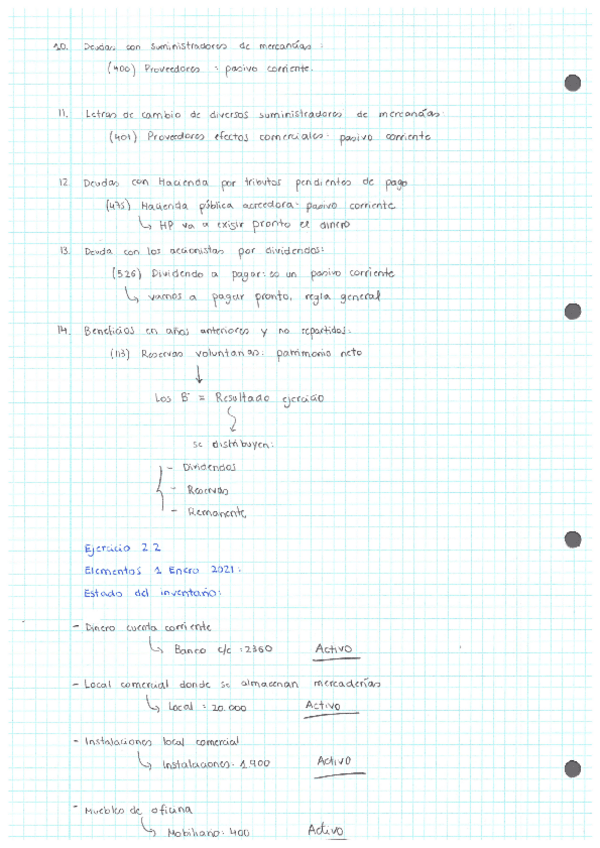 10. Deudas con suministradores de mercancías:
(400) Proveedores : pasivo corriente.
11. Letras de cambio de diversos suministradores de mercancías:
(401) Proveedores efectos comerciales: pasivo corriente
12. Deudas con Hacienda por tributos pendientes de pago
(475) Hacienda pública acreedora- pasivo corriente
↳ HP va a exisir pronto el dinero
13. Deuda con los accionistas por dividendos:
(526) Dividendo a pagar: es un pasivo corriente
↳ vamos a pagar pronto, regla general
14. Beneficios en años anteriores y no repartidos:
(113) Reservas voluntarias: patrimonio neto
↓
Los Bº = Resultado ejercicio
se distribuyen:
- Dividendos
- Reservas
- Remanente
Ejercicio 2.2
Elementos 1 Enero 2021:
Estado del inventario:
- Dinero cuenta corriente
↳ Banco c/c : 2360 Activo
- Local comercial donde se almacenan mercaderías
↳ Local : 20.000 Activo
- Instalaciones local comercial
↳ Instalaciones: 1.900 Activo
- Muebles de oficina
↳ Mobiliario: 400 Activo